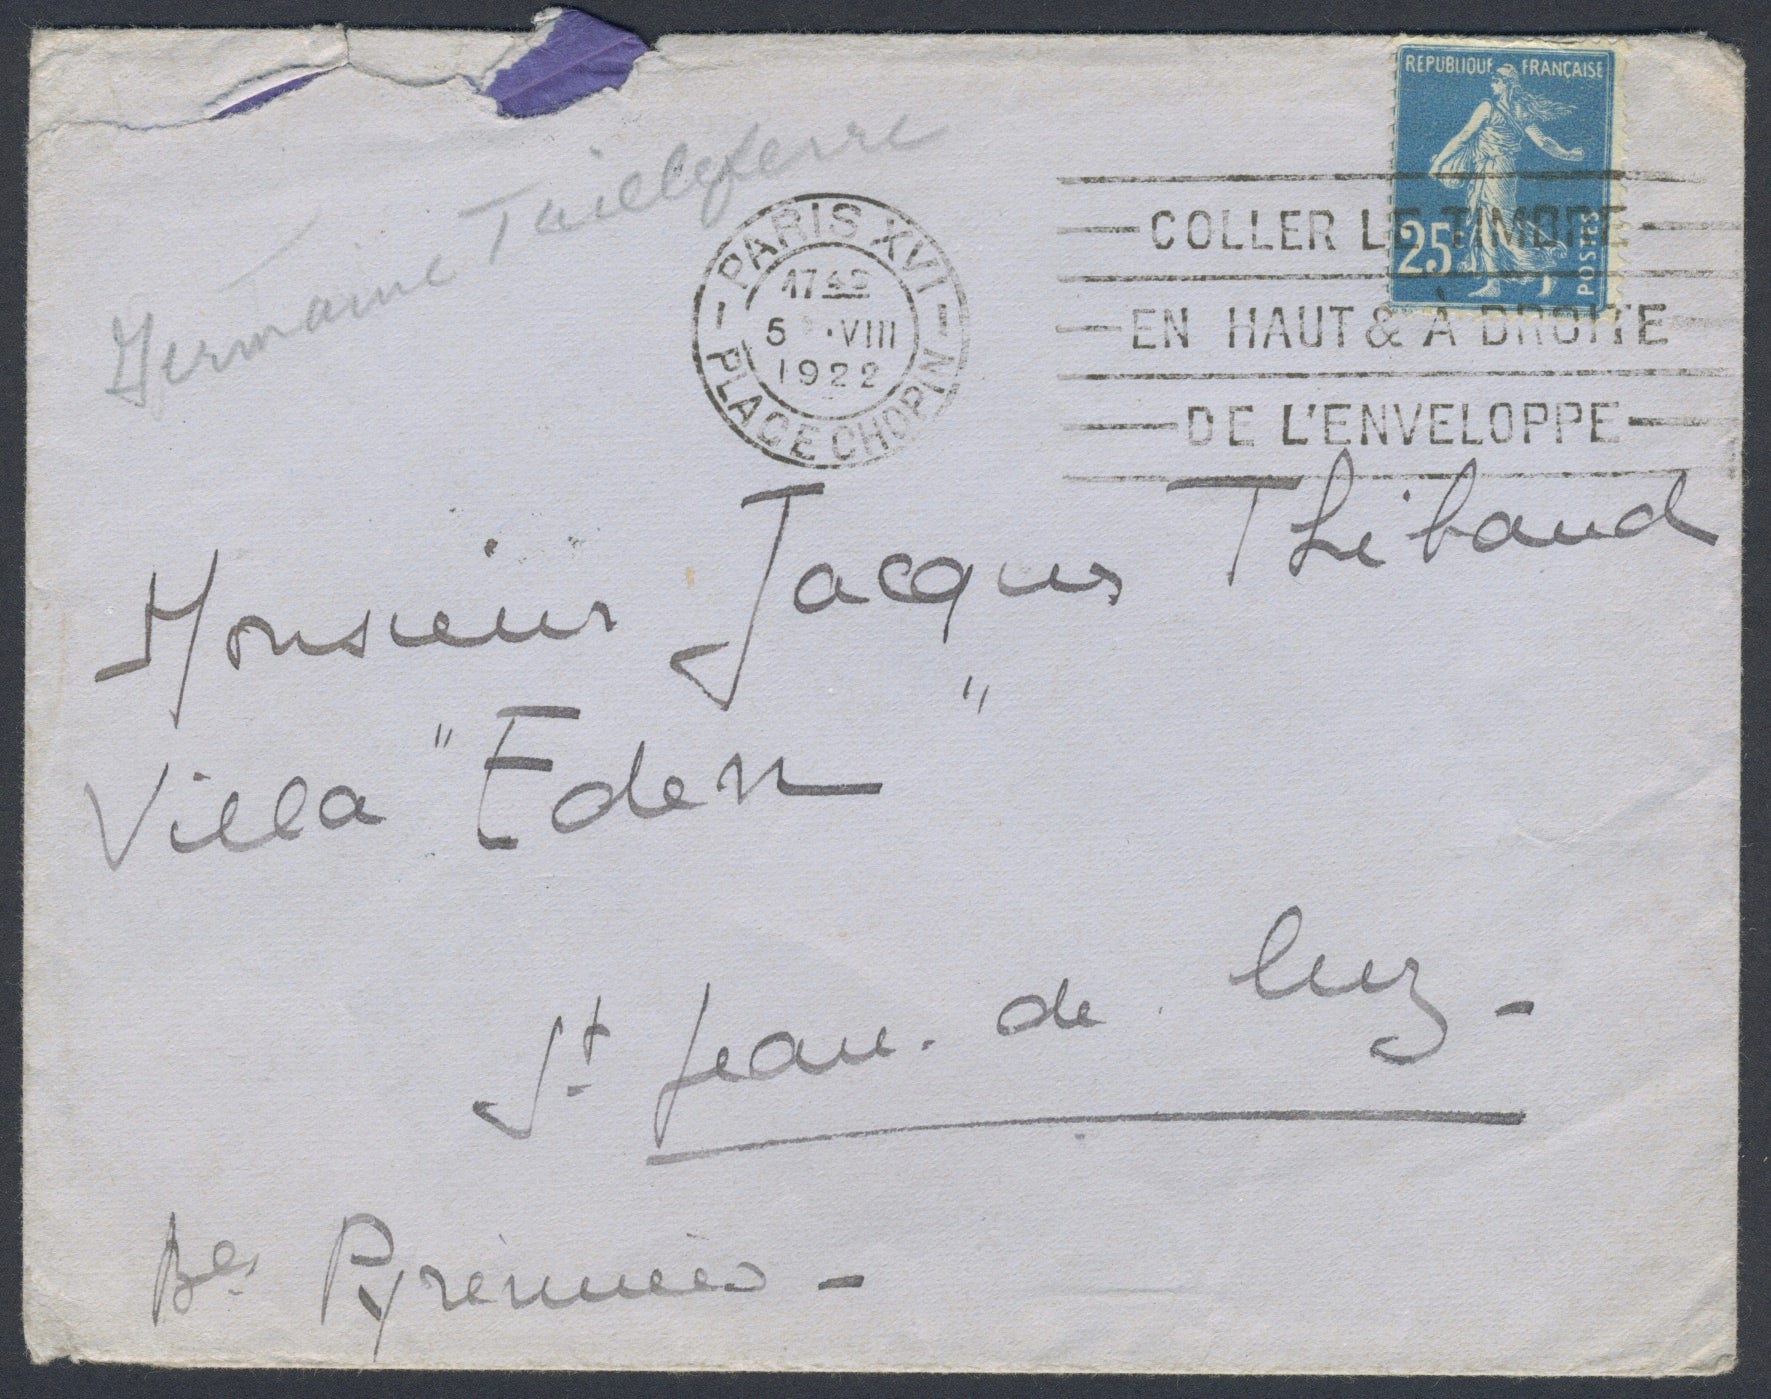 Germaine Tailleferre
REPUBLIQUE FRANÇAISE
25
POSTES
PARIS XVI
5 VIII
1922
PLACE CHOPIN
COLLER LE TIMBRE
EN HAUT & À DROITE
DE L'ENVELOPPE
Monsieur Jacques Thibaud
Villa "Eden"
St Jean. de Luz -
Bes Pyrénnées -